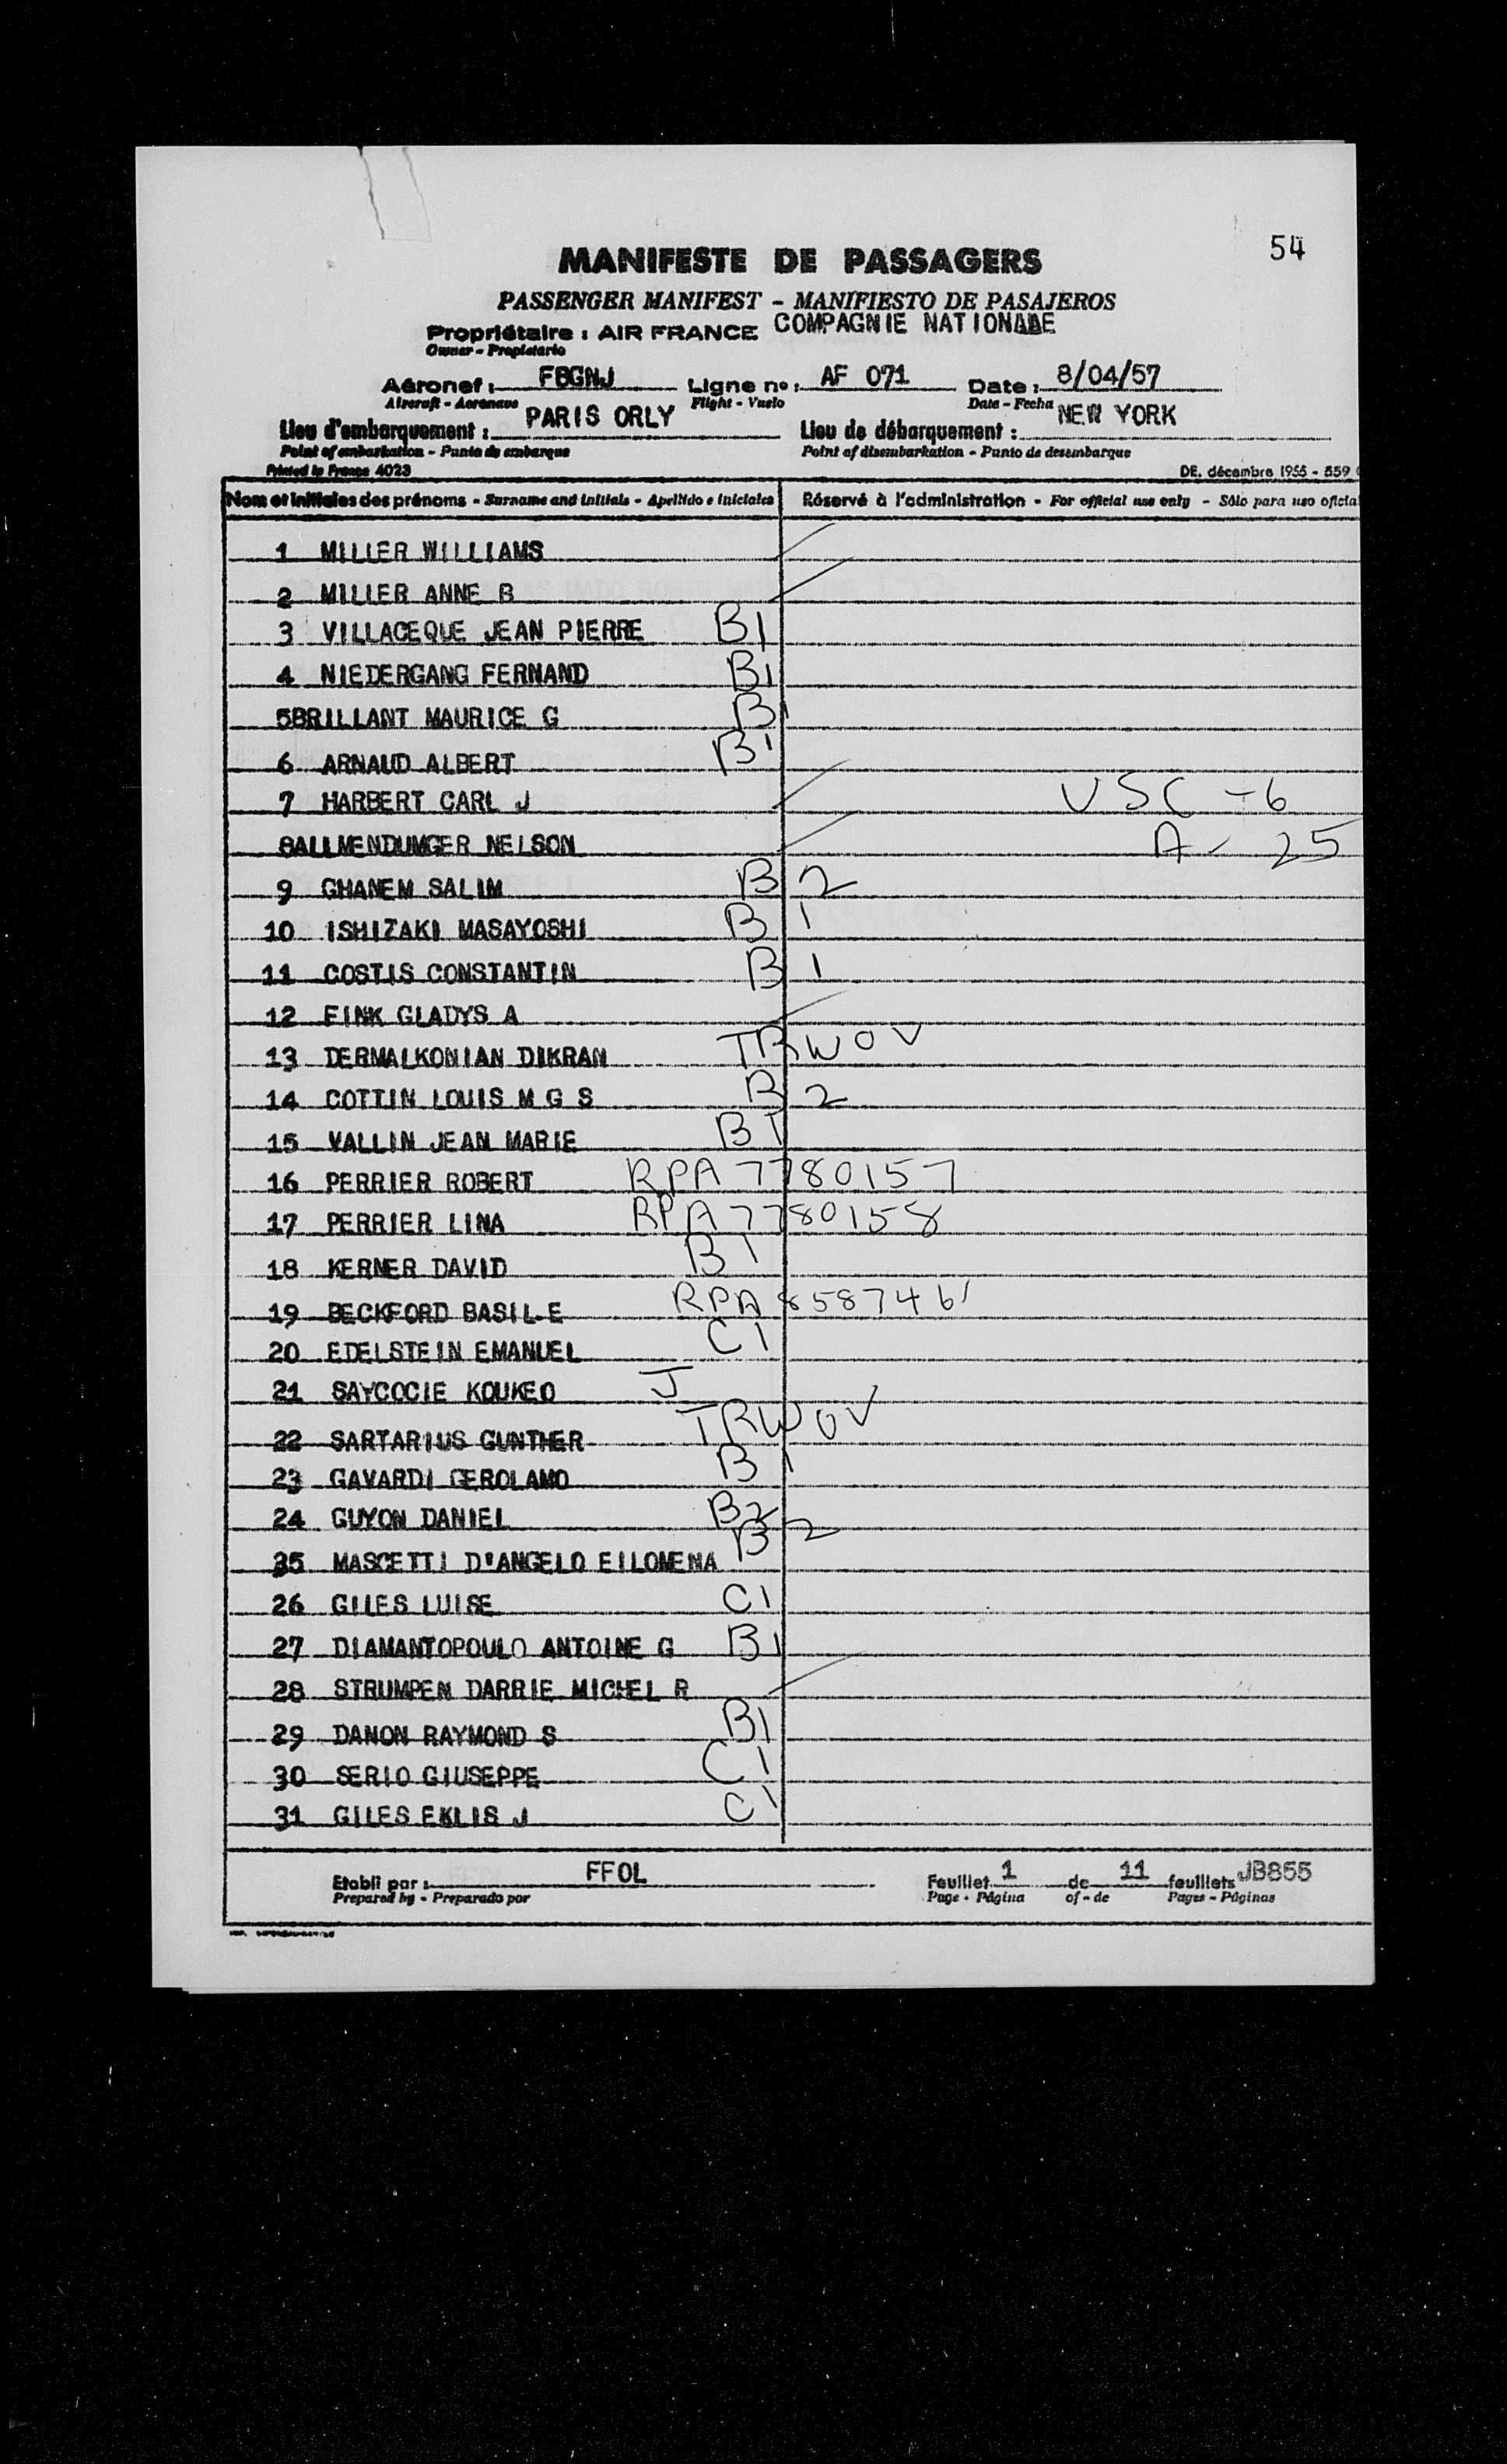 54
MANIFESTE DE PASSAGERS
PASSENGER MANIFEST - MANIFIESTO DE PASAJEROS
Propriétaire : AIR FRANCE COMPAGNIE NATIONALE
Owner - Propietario
Aéronef : FBGNJ Ligne no : AF 071 Date : 8/04/57
Aircraft - Aeronave Flight - Vuelo Date - Fecha
Lieu d'embarquement : PARIS ORLY Lieu de débarquement : NEW YORK
Point of embarkation - Punto de embarque Point of disembarkation - Punto de desembarque
Printed in France 4023 DE. décembre 1955 - 559
Nom et initiales des prénoms - Surname and initials - Apellido e iniciales Réservé à l'administration - For official use only - Sólo para uso oficial
1 MILLER WILLIAMS
2 MILLER ANNE B
3 VILLACEQUE JEAN PIERRE B1
4 NIEDERGANG FERNAND B1
5BRILLANT MAURICE G B1
6 ARNAUD ALBERT B1
7 HARBERT CARL J USC - 6
8ALLMENDUMGER NELSON A - 25
9 GHANEM SALIM B 2
10 ISHIZAKI MASAYOSHI B 1
11 COSTIS CONSTANTIN B 1
12 FINK GLADYS A
13 DERMALKONIAN DIKRAN TRWOV
14 COTTIN LOUIS M G S B 2
15 VALLIN JEAN MARIE B1
16 PERRIER ROBERT RPA 7780157
17 PERRIER LINA RPA 7780158
18 KERNER DAVID B1
19 BECKFORD BASIL E RPA 8587461
20 EDELSTEIN EMANUEL C1
21 SAYCOCIE KOUKEO J
22 SARTARIUS GUNTHER TRWOV
23 GAVARDI GEROLAMO B1
24 GUYON DANIEL B2
35 MASCETTI D'ANGELO EILOMENA B 2
26 GILES LUISE C1
27 DIAMANTOPOULO ANTOINE G B1
28 STRUMPEN DARRIE MICHEL R
29 DANON RAYMOND S B1
30 SERIO GIUSEPPE C1
31 GILES EKLIS J C1
Etabli par : FFOL Feuillet 1 de 11 feuillets JB855
Prepared by - Preparado por Page - Página of - de Pages - Páginas